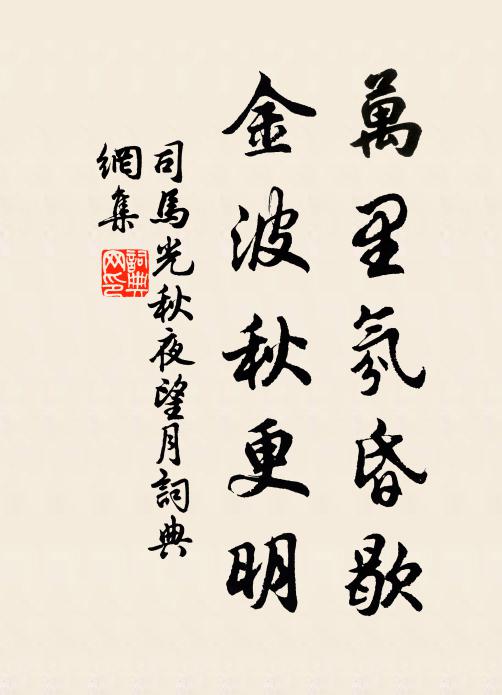 萬里氛昏歇
金波秋更明
司馬光秋夜望月詞典
網集
詞典
网印